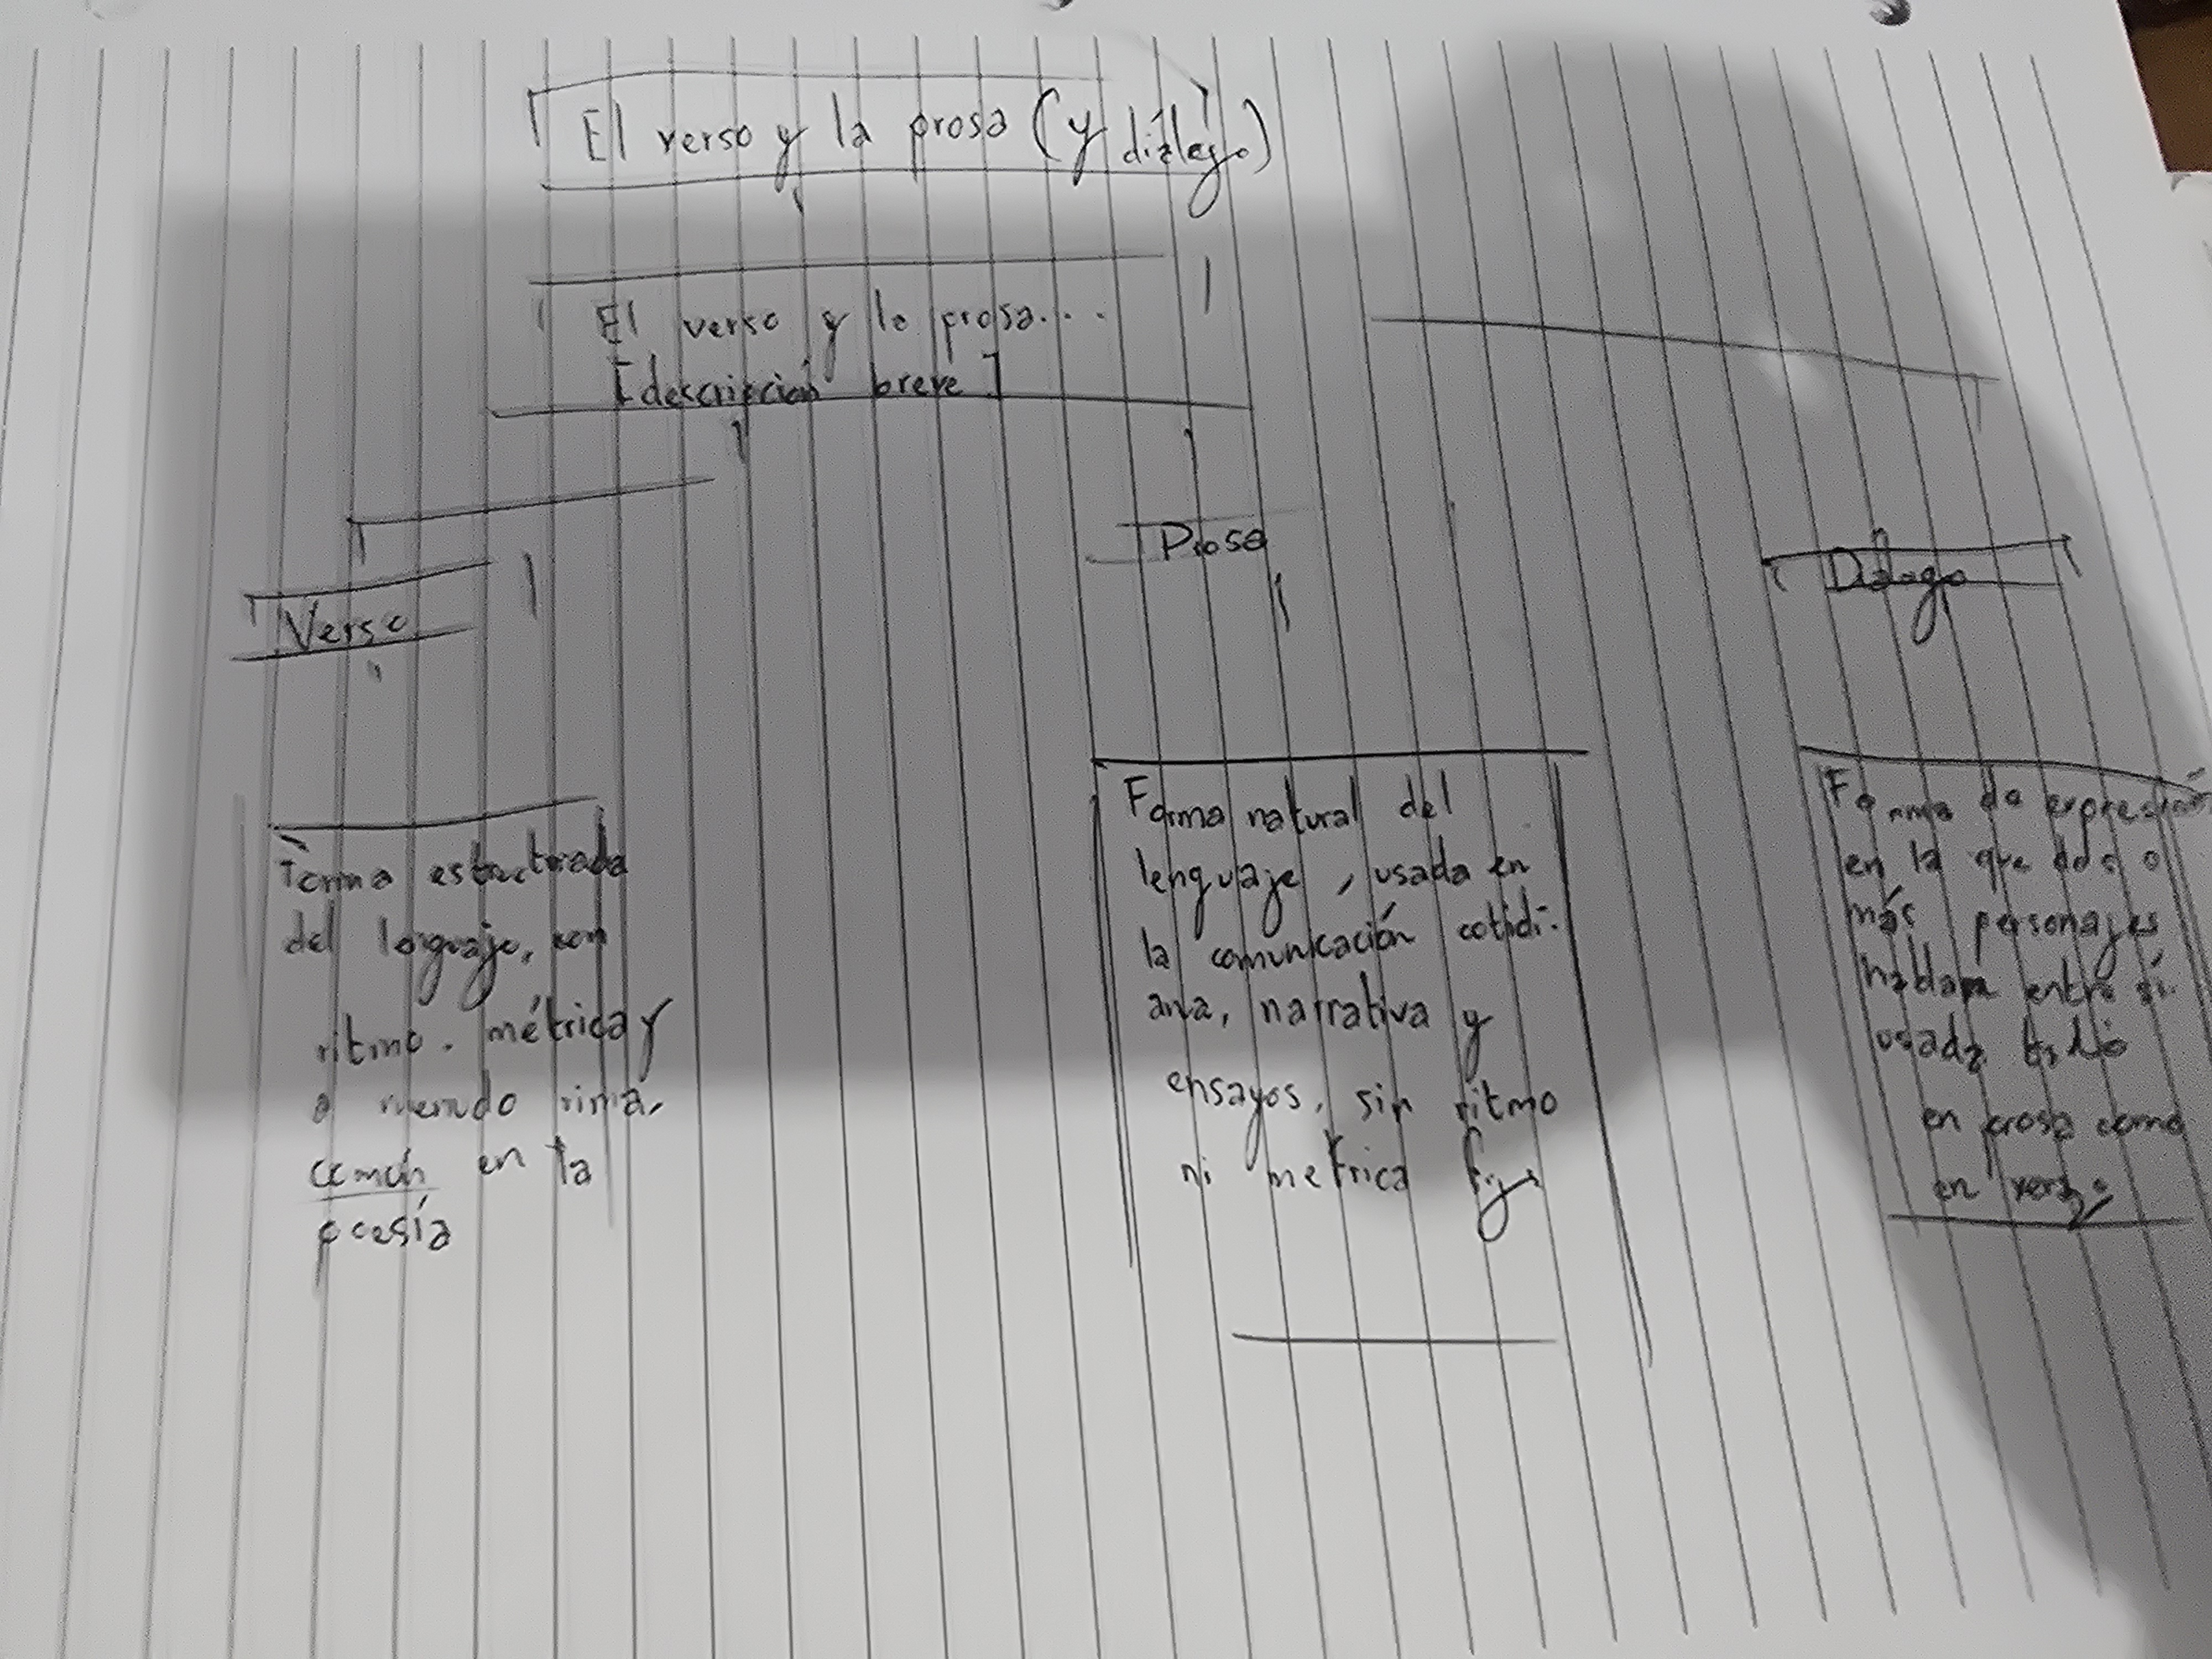 El verso y la prosa (y diálogo)
El verso y la prosa...
[descripción breve]
Verso
Prosa
Diálogo
Forma estructurada
del lenguaje, con
ritmo, métrica y
a menudo rima,
común en la
poesía
Forma natural del
lenguaje, usada en
la comunicación cotidi-
ana, narrativa y
ensayos, sin ritmo
ni métrica fija
Forma de expresión
en la que dos o
más personajes
hablan entre sí.
usada
en prosa como
en verso